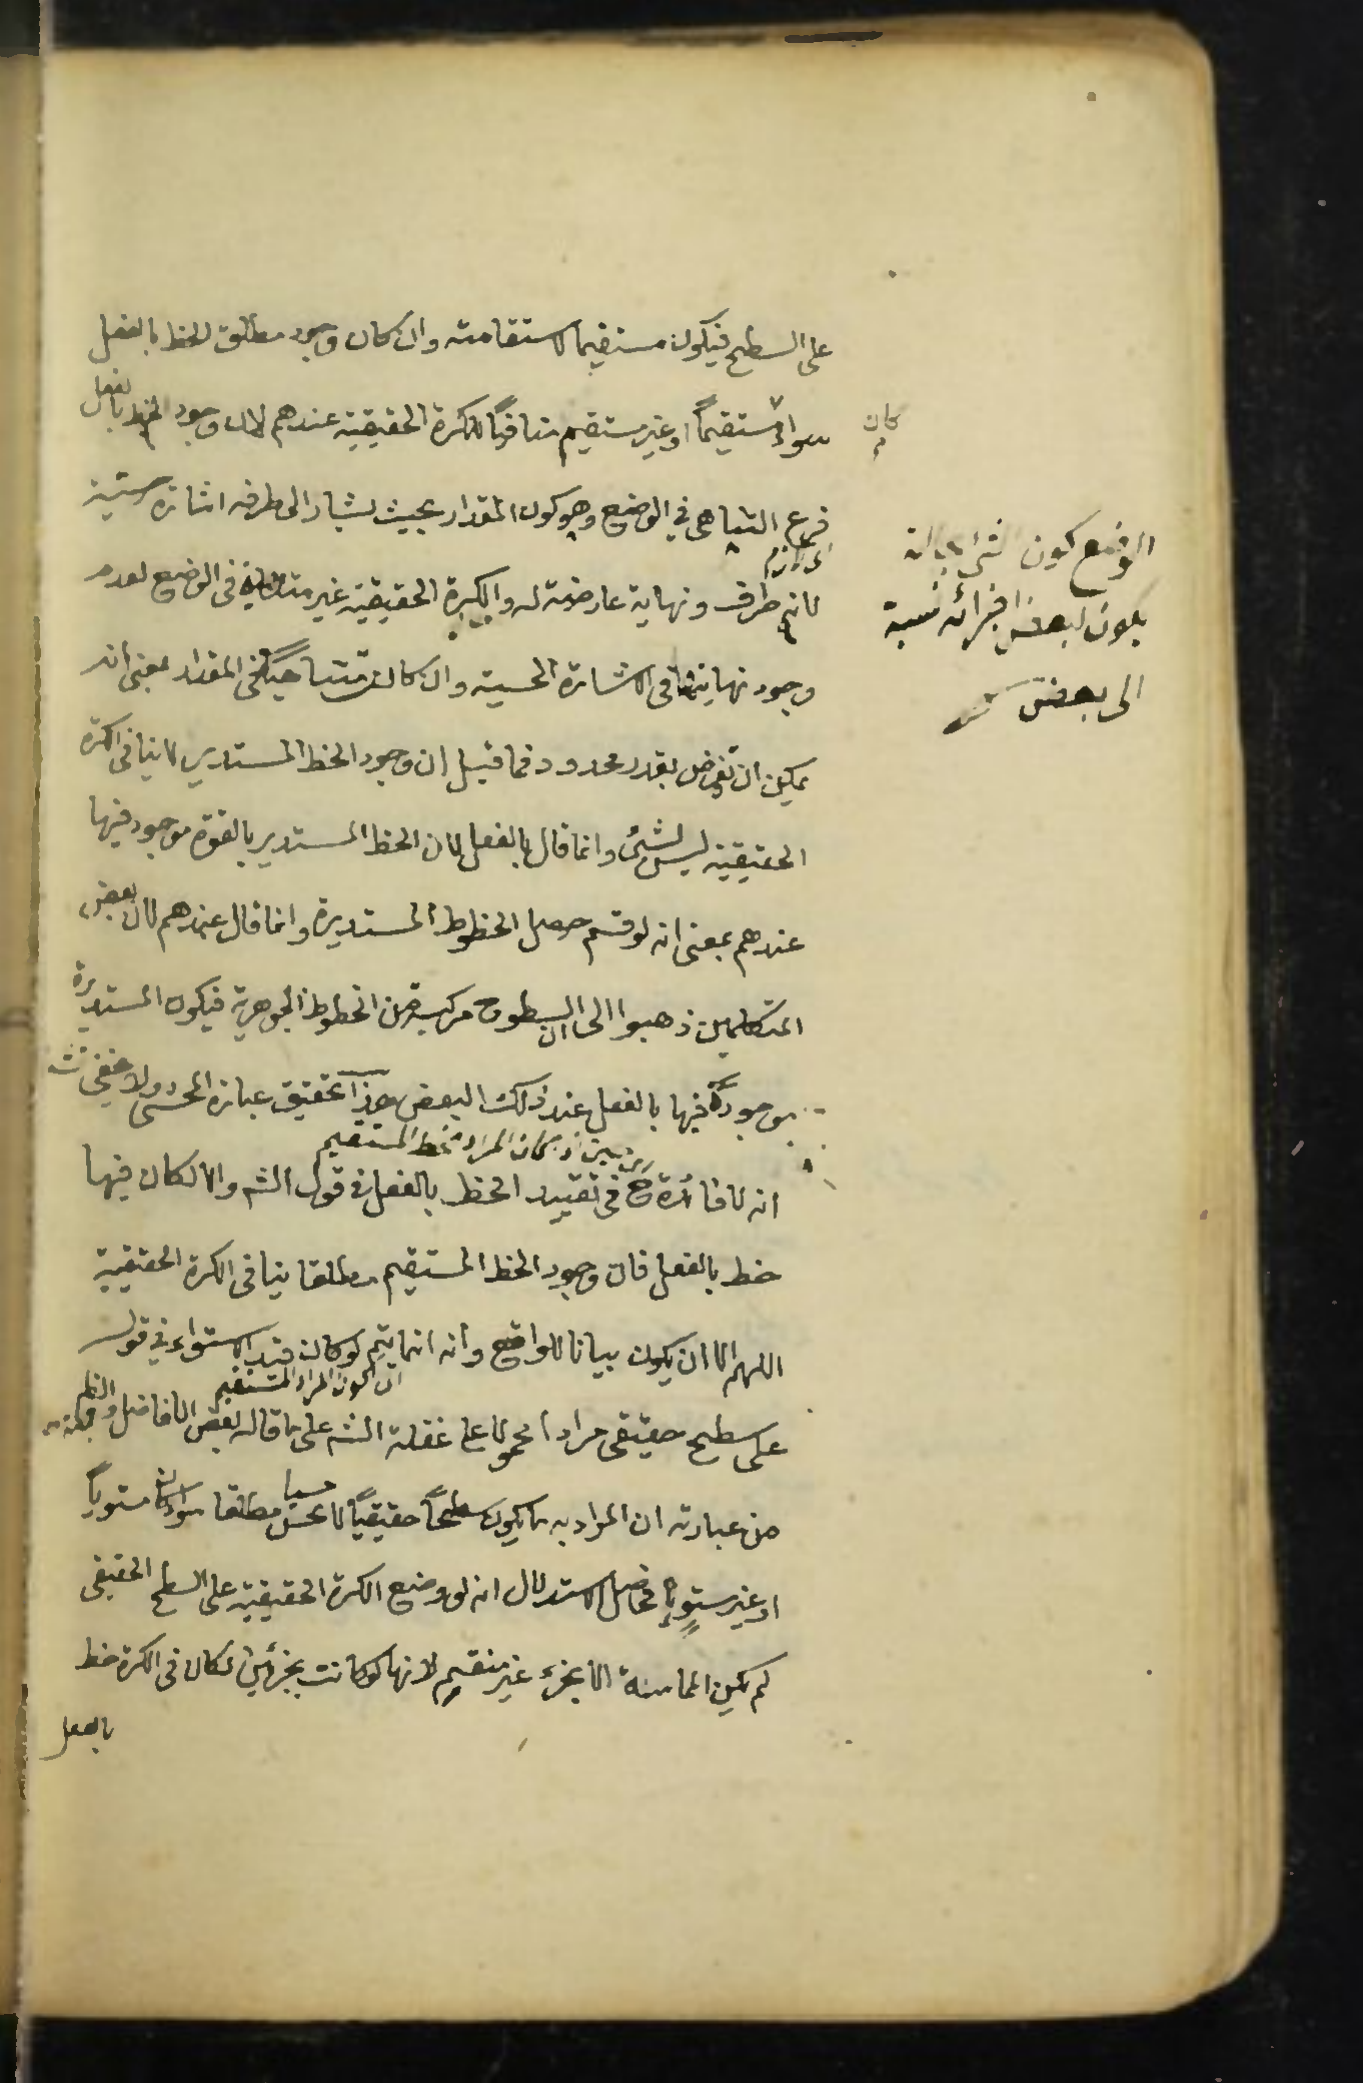 على السطح فيكون مستقيما لاستقامته وان كان وجود مطلق الخط بالفعل
سواء مستقيماً او غير مستقيم منافياً للكرة الحقيقية عندهم لان وجود الخط بالفعل
كان
فرع التناهى في الوضع وهو كون المقدار بحيث يشار الى طرفه اشارة حسية
اى لازم
لانه طرف ونهاية عارضة له والكرة الحقيقية غير متناهية فى الوضع لعدم
وجود نهايتها فى الاشارة الحسية وان كانت متناهية فى المقدار بمعنى انه
يمكن ان تفرض بقدر محدود فما قيل ان وجود الخط المستدير لا ينافى الكرة
الحقيقية ليس بشئ وانما قال بالفعل لان الخط المستدير بالقوة موجود فيها
عندهم بمعنى انه لو قسم حصل الخطوط المستديرة وانما قال عندهم لان بعض
المتكلمين ذهبوا الى ان السطوح مركبة من الخطوط الجوهرية فيكون المستديرة
موجودة فيها بالفعل عند ذلك البعض هذا تحقيق عبارة المحشى ولا يخفى
حين اذ كان المراد خط المستقيم
انه لا فائدة ح فى تقييد الخط بالفعل فى قول الشه والا لكان فيها
خط بالفعل فان وجود الخط المستقيم مطلقا ينافى الكرة الحقيقية
اللهم الا ان يكون بيانا للواقع وانه انما يتم لو كان قيد الاستواء في قوله
ان يكون المراد المستقيم
على سطح حقيقى مرادا محمولا على غفلة الشه على ما قاله بعض الافاضل والظ
من عبارته ان المراد به ما يكون سطحاً حقيقياً لا بحسن مطلقا سواء كان مستوياً
حسيا
او غير مستو فحاصل الاستدلال انه لو وضع الكرة الحقيقية على السطح الحقيقى
لم يكن المماسة الا بجزء غير منقسم لانها لو كانت بجزئين لكان فى الكرة خط
بالفعل
الوضع كون الشئ بحالة
يكون لبعض اجزائه نسبة
الى بعض